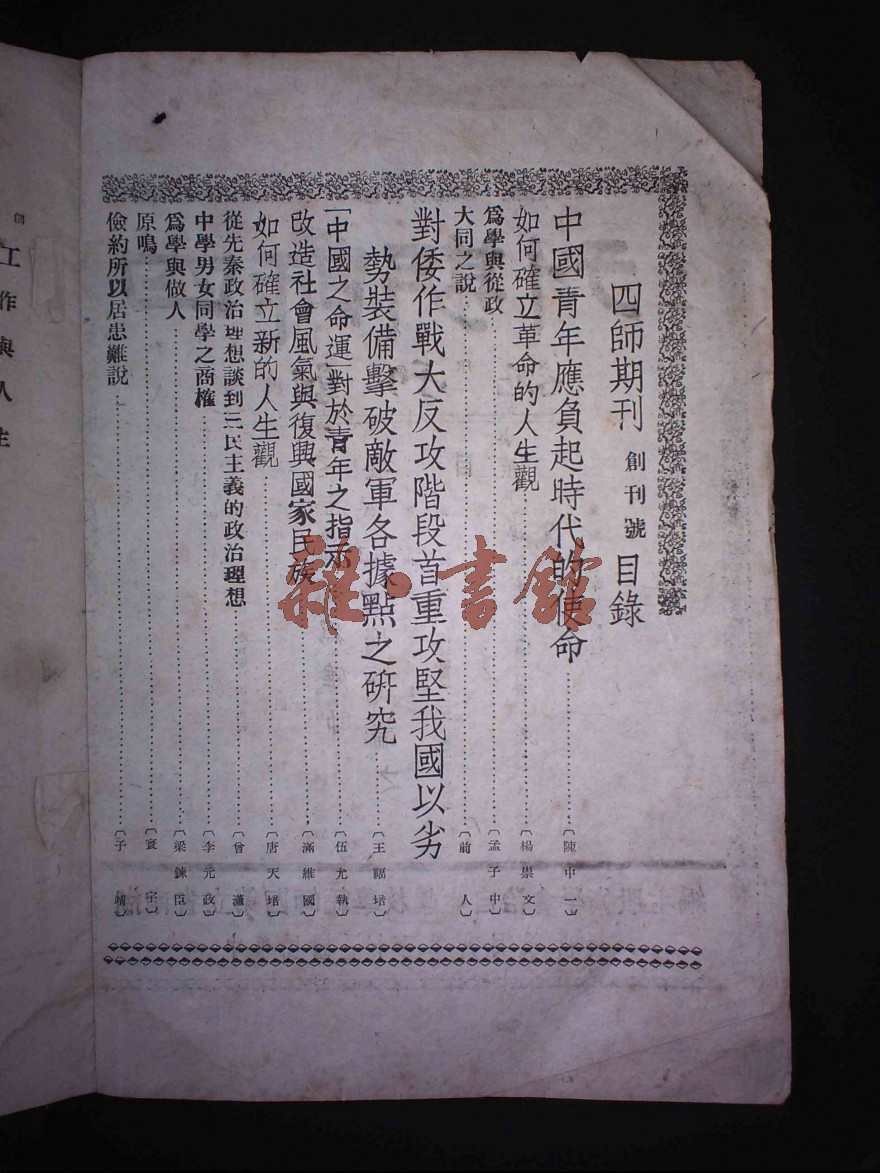 四師期刊 創刊號 目錄
中國青年應負起時代的使命……〔陳中一〕
如何確立革命的人生觀……〔楊崇文〕
為學與從政……〔孟子中〕
大同之說……〔前人〕
對倭作戰大反攻階段首重攻堅我國以劣
勢裝備擊破敵軍各據點之研究……〔王福培〕
「中國之命運」對於青年之指示……〔伍尤執〕
改造社會風氣與復興國家民族……〔滿維國〕
如何確立新的人生觀……〔唐天培〕
從先秦政治理想談到三民主義的政治理想……〔曾瀟〕
中學男女同學之商榷……〔李元政〕
為學與做人……〔梁鍊臣〕
原鳴……〔寰宇〕
儉約所以居患難說……〔子靖〕
創
工作與人生
雜·書館